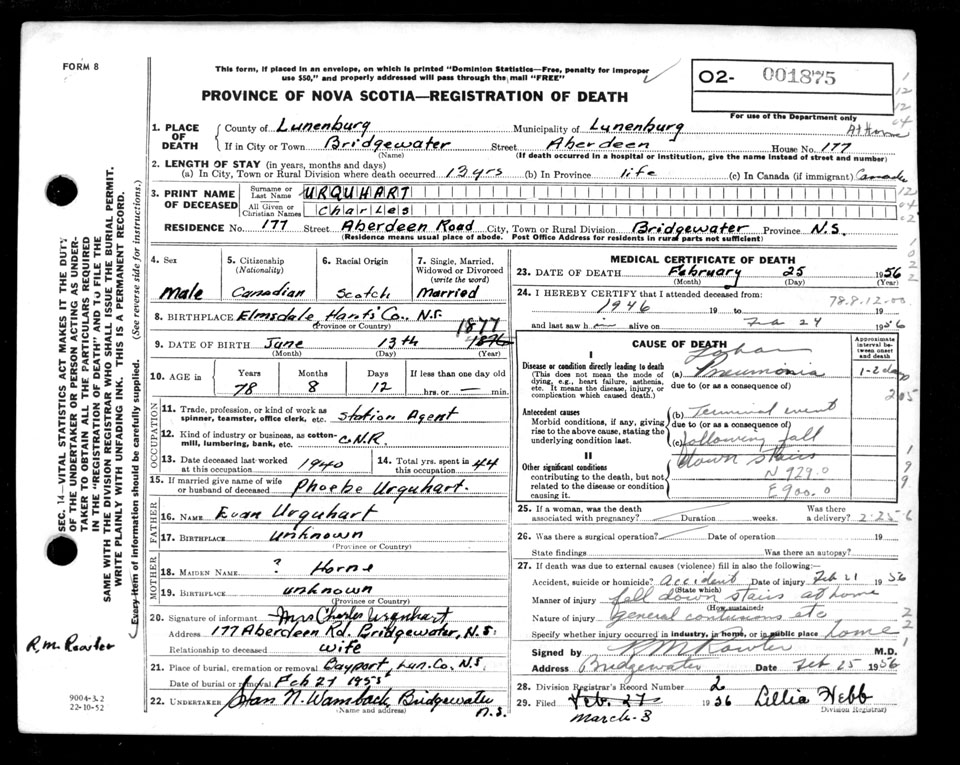 FORM 8
This form, if placed in an envelope, on which is printed "Dominion Statistics—Free, penalty for improper
use $50," and properly addressed will pass through the mail "FREE"
PROVINCE OF NOVA SCOTIA—REGISTRATION OF DEATH
O2- 001875
For use of the Department only
At Home
1. PLACE OF DEATH
County of Lunenburg Municipality of Lunenburg
If in City or Town Bridgewater Street Aberdeen House No. 177
(Name) (If death occurred in a hospital or institution, give the name instead of street and number)
2. LENGTH OF STAY (in years, months and days)
(a) In City, Town or Rural Division where death occurred 12 yrs (b) In Province life (c) In Canada (if immigrant) Canada
3. PRINT NAME OF DECEASED
Surname or Last Name URQUHART
All Given or Christian Names Charles
RESIDENCE No. 177 Street Aberdeen Road City, Town or Rural Division Bridgewater Province N.S.
(Residence means usual place of abode. Post Office Address for residents in rural parts not sufficient)
4. Sex
Male
5. Citizenship (Nationality)
Canadian
6. Racial Origin
Scotch
7. Single, Married, Widowed or Divorced (write the word)
Married
8. BIRTHPLACE Elmsdale Hants Co., N.S.
(Province or Country)
9. DATE OF BIRTH June 13th 1877 1876
(Month) (Day) (Year)
10. AGE in Years Months Days If less than one day old
78 8 12 hrs. or min.
OCCUPATION
11. Trade, profession, or kind of work as spinner, teamster, office clerk, etc. Station Agent
12. Kind of industry or business, as cotton-mill, lumbering, bank, etc. C.N.R.
13. Date deceased last worked at this occupation 1940
14. Total yrs. spent in this occupation 44
15. If married give name of wife or husband of deceased Phoebe Urquhart.
FATHER
16. NAME Evan Urquhart
17. BIRTHPLACE unknown
(Province or Country)
MOTHER
18. MAIDEN NAME ? Horne
19. BIRTHPLACE unknown
(Province or Country)
20. Signature of informant Mrs Charles Urquhart
Address 177 Aberdeen Rd. Bridgewater, N.S.
Relationship to deceased wife
21. Place of burial, cremation or removal Bayport, Lun. Co. N.S.
Date of burial or removal Feb 27
22. UNDERTAKER N. Wambach Bridgewater N.S.
(Name and address)
MEDICAL CERTIFICATE OF DEATH
23. DATE OF DEATH February 25 1956
(Month) (Day) (Year)
24. I HEREBY CERTIFY that I attended deceased from:
78.8.12.00
1946 19 to 19
and last saw h im alive on Feb 24 1956
CAUSE OF DEATH
Approximate interval between onset and death
I
Disease or condition directly leading to death
(This does not mean the mode of dying, e.g., heart failure, asthenia, etc. It means the disease, injury, or complication which caused death.)
(a) Lobar Pneumonia 1-2 days
due to (or as a consequence of)
Antecedent causes
Morbid conditions, if any, giving rise to the above cause, stating the underlying condition last.
(b) Terminal event
due to (or as a consequence of)
(c) following fall
down stairs
II
Other significant conditions contributing to the death, but not related to the disease or condition causing it.
N 929.0
E 900.0
25. If a woman, was the death associated with pregnancy? Duration weeks. Was there a delivery? 2-25-6
26. Was there a surgical operation? Date of operation 19
State findings Was there an autopsy?
27. If death was due to external causes (violence) fill in also the following:
Accident, suicide or homicide? Accident Date of injury Feb 21 1956
(State which)
Manner of injury fall down stairs at home
(How sustained)
Nature of injury general contusions etc
Specify whether injury occurred in industry, in home, or in public place home
Signed by R M Rowter M.D.
Address Bridgewater Date Feb 25 1956
28. Division Registrar's Record Number 2
29. Filed Feb. 27 1956 Lillia Webb
March 3 Division Registrar)
SEC. 14—VITAL STATISTICS ACT MAKES IT THE DUTY
OF THE UNDERTAKER OR PERSON ACTING AS UNDER-
TAKER TO OBTAIN ALL THE PARTICULARS REQUIRED
IN THE "REGISTRATION OF DEATH" AND TO FILE THE
SAME WITH THE DIVISION REGISTRAR WHO SHALL ISSUE THE BURIAL PERMIT.
WRITE PLAINLY WITH UNFADING INK. THIS IS A PERMANENT RECORD.
Every item of information should be carefully supplied. (See reverse side for instructions.)
R.M. Rowter
9004-3.2
22-10-52